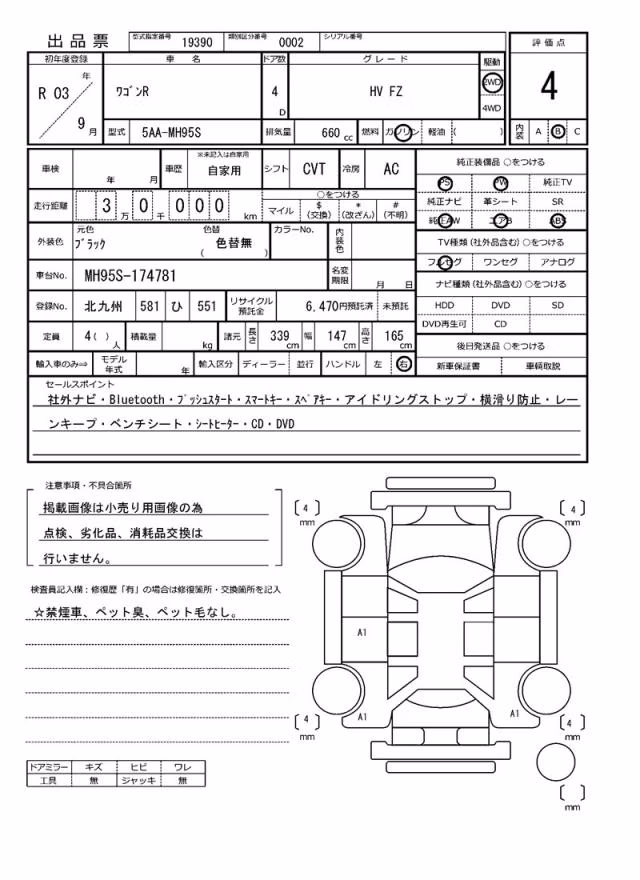 出品票 型式指定番号 19390 類別区分番号 0002 シリアル番号
評価点
4
初年度登録 車名 ドア数 グレード 駆動
R 03 年 9 月 ワゴンR 4 D HV FZ 2WD 4WD
型式 5AA-MH95S 排気量 660 cc 燃料 ガソリン 軽油 ( ) 内装 A B C
車検 年 月 車歴 ※未記入は自家用 自家用 シフト CVT 冷房 AC
純正装備品 ○をつける
PS PW 純正TV
純正ナビ 革シート SR
純正AW エアB ABS
走行距離 3 万 0 千 0 0 0 km ○をつける
マイル $ (交換) * (改ざん) # (不明)
外装色 元色 ブラック 色替 ( 色替無 ) カラーNo. 内装色
TV種類 (社外品含む) ○をつける
フルセグ ワンセグ アナログ
車台No. MH95S-174781 名変期限 月 日
ナビ種類 (社外品含む) ○をつける
HDD DVD SD
DVD再生可 CD
登録No. 北九州 581 ひ 551 リサイクル預託金 6,470円預託済 未預託
定員 4( ) 人 積載量 kg 諸元 長さ 339 cm 幅 147 cm 高さ 165 cm
後日発送品 ○をつける
新車保証書 車輌取説
輸入車のみ⇒ モデル年式 年 輸入区分 ディーラー 並行 ハンドル 左 右
セールスポイント
社外ナビ・Bluetooth・プッシュスタート・スマートキー・スペアキー・アイドリングストップ・横滑り防止・レー
ンキープ・ベンチシート・シートヒーター・CD・DVD
注意事項・不具合箇所
掲載画像は小売り用画像の為
点検、劣化品、消耗品交換は
行いません。
検査員記入欄:修復歴「有」の場合は修復箇所・交換箇所を記入
☆禁煙車、ペット臭、ペット毛なし。
ドアミラー キズ ヒビ ワレ
工具 無 ジャッキ 無
4 mm
4 mm
A1
A1
A1
4 mm
4 mm
mm